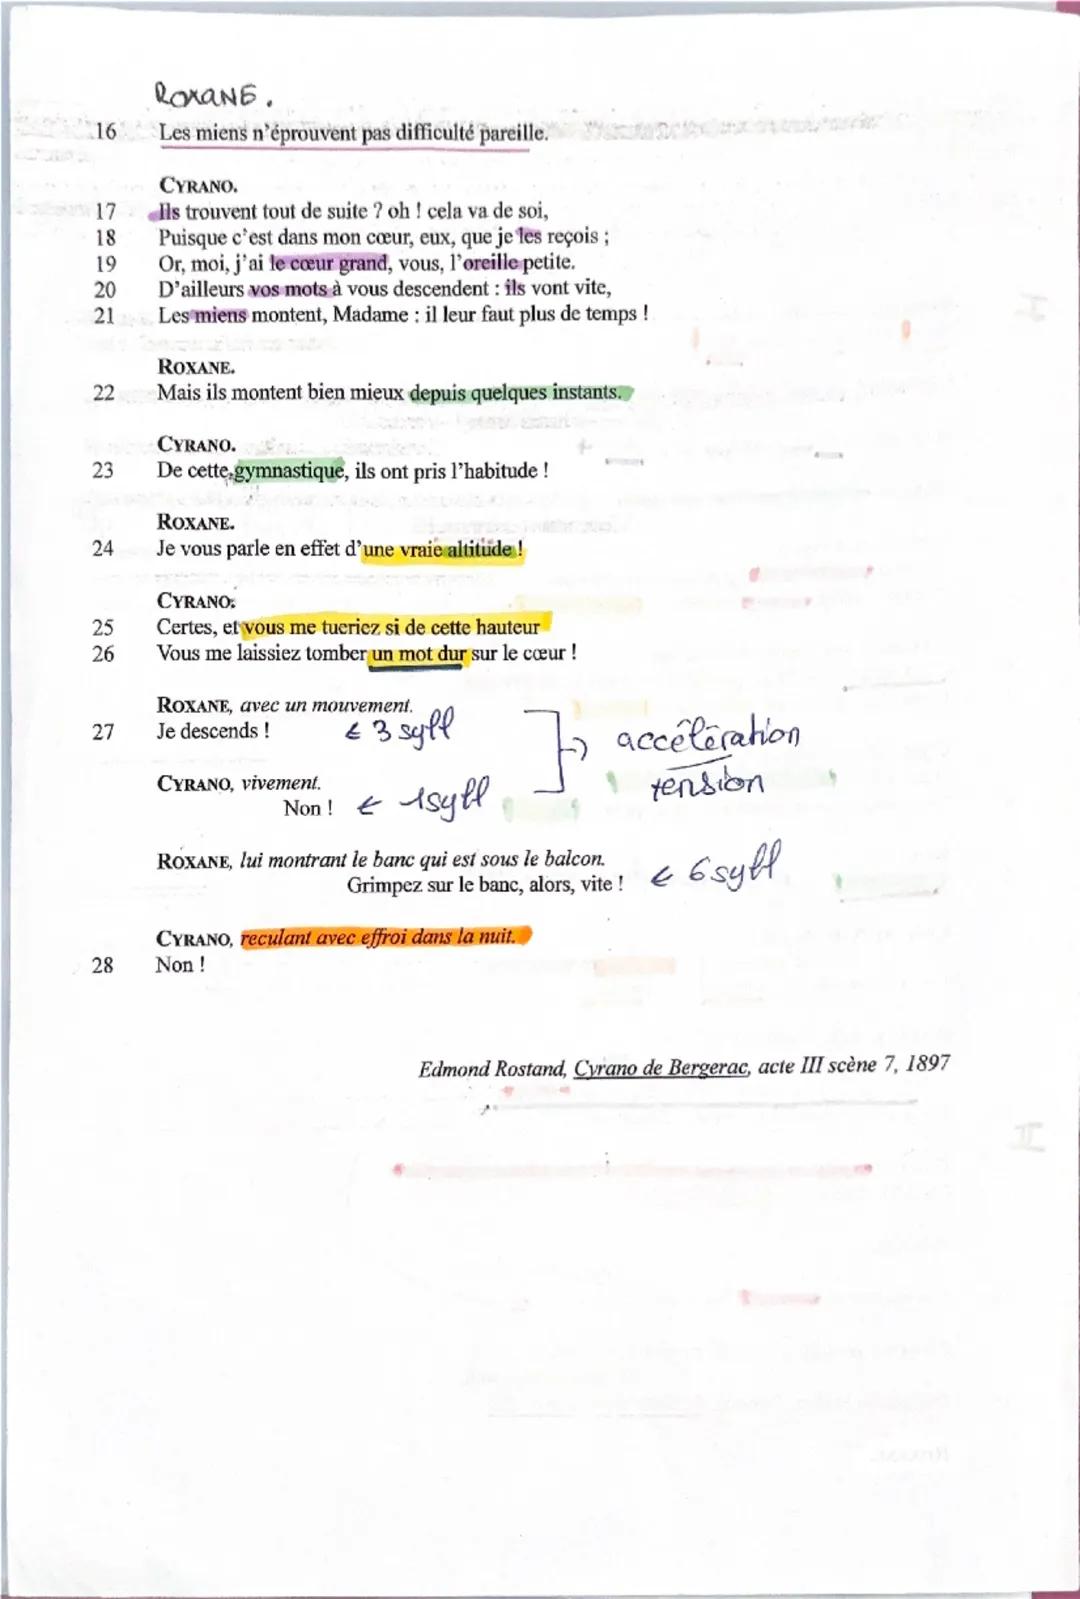 ROXANE.
16 Les miens n'éprouvent pas difficulté pareille.
CYRANO.
17 Ils trouvent tout de suite ? oh ! cela va de soi,
18 Puisque c'est dans mon cœur, eux, que je les reçois ;
19 Or, moi, j'ai le cœur grand, vous, l'oreille petite.
20 D'ailleurs vos mots à vous descendent : ils vont vite,
21 Les miens montent, Madame : il leur faut plus de temps !
ROXANE.
22 Mais ils montent bien mieux depuis quelques instants.
CYRANO.
23 De cette gymnastique, ils ont pris l'habitude !
ROXANE.
24 Je vous parle en effet d'une vraie altitude !
CYRANO.
25 Certes, et vous me tueriez si de cette hauteur
26 Vous me laissiez tomber un mot dur sur le cœur !
ROXANE, avec un mouvement.
27 Je descends ! ← 3 syll
accélération
tension
CYRANO, vivement.
Non ! ← 1 syll
ROXANE, lui montrant le banc qui est sous le balcon.
Grimpez sur le banc, alors, vite ! ← 6 syll
CYRANO, reculant avec effroi dans la nuit.
28 Non !
Edmond Rostand, Cyrano de Bergerac, acte III scène 7, 1897